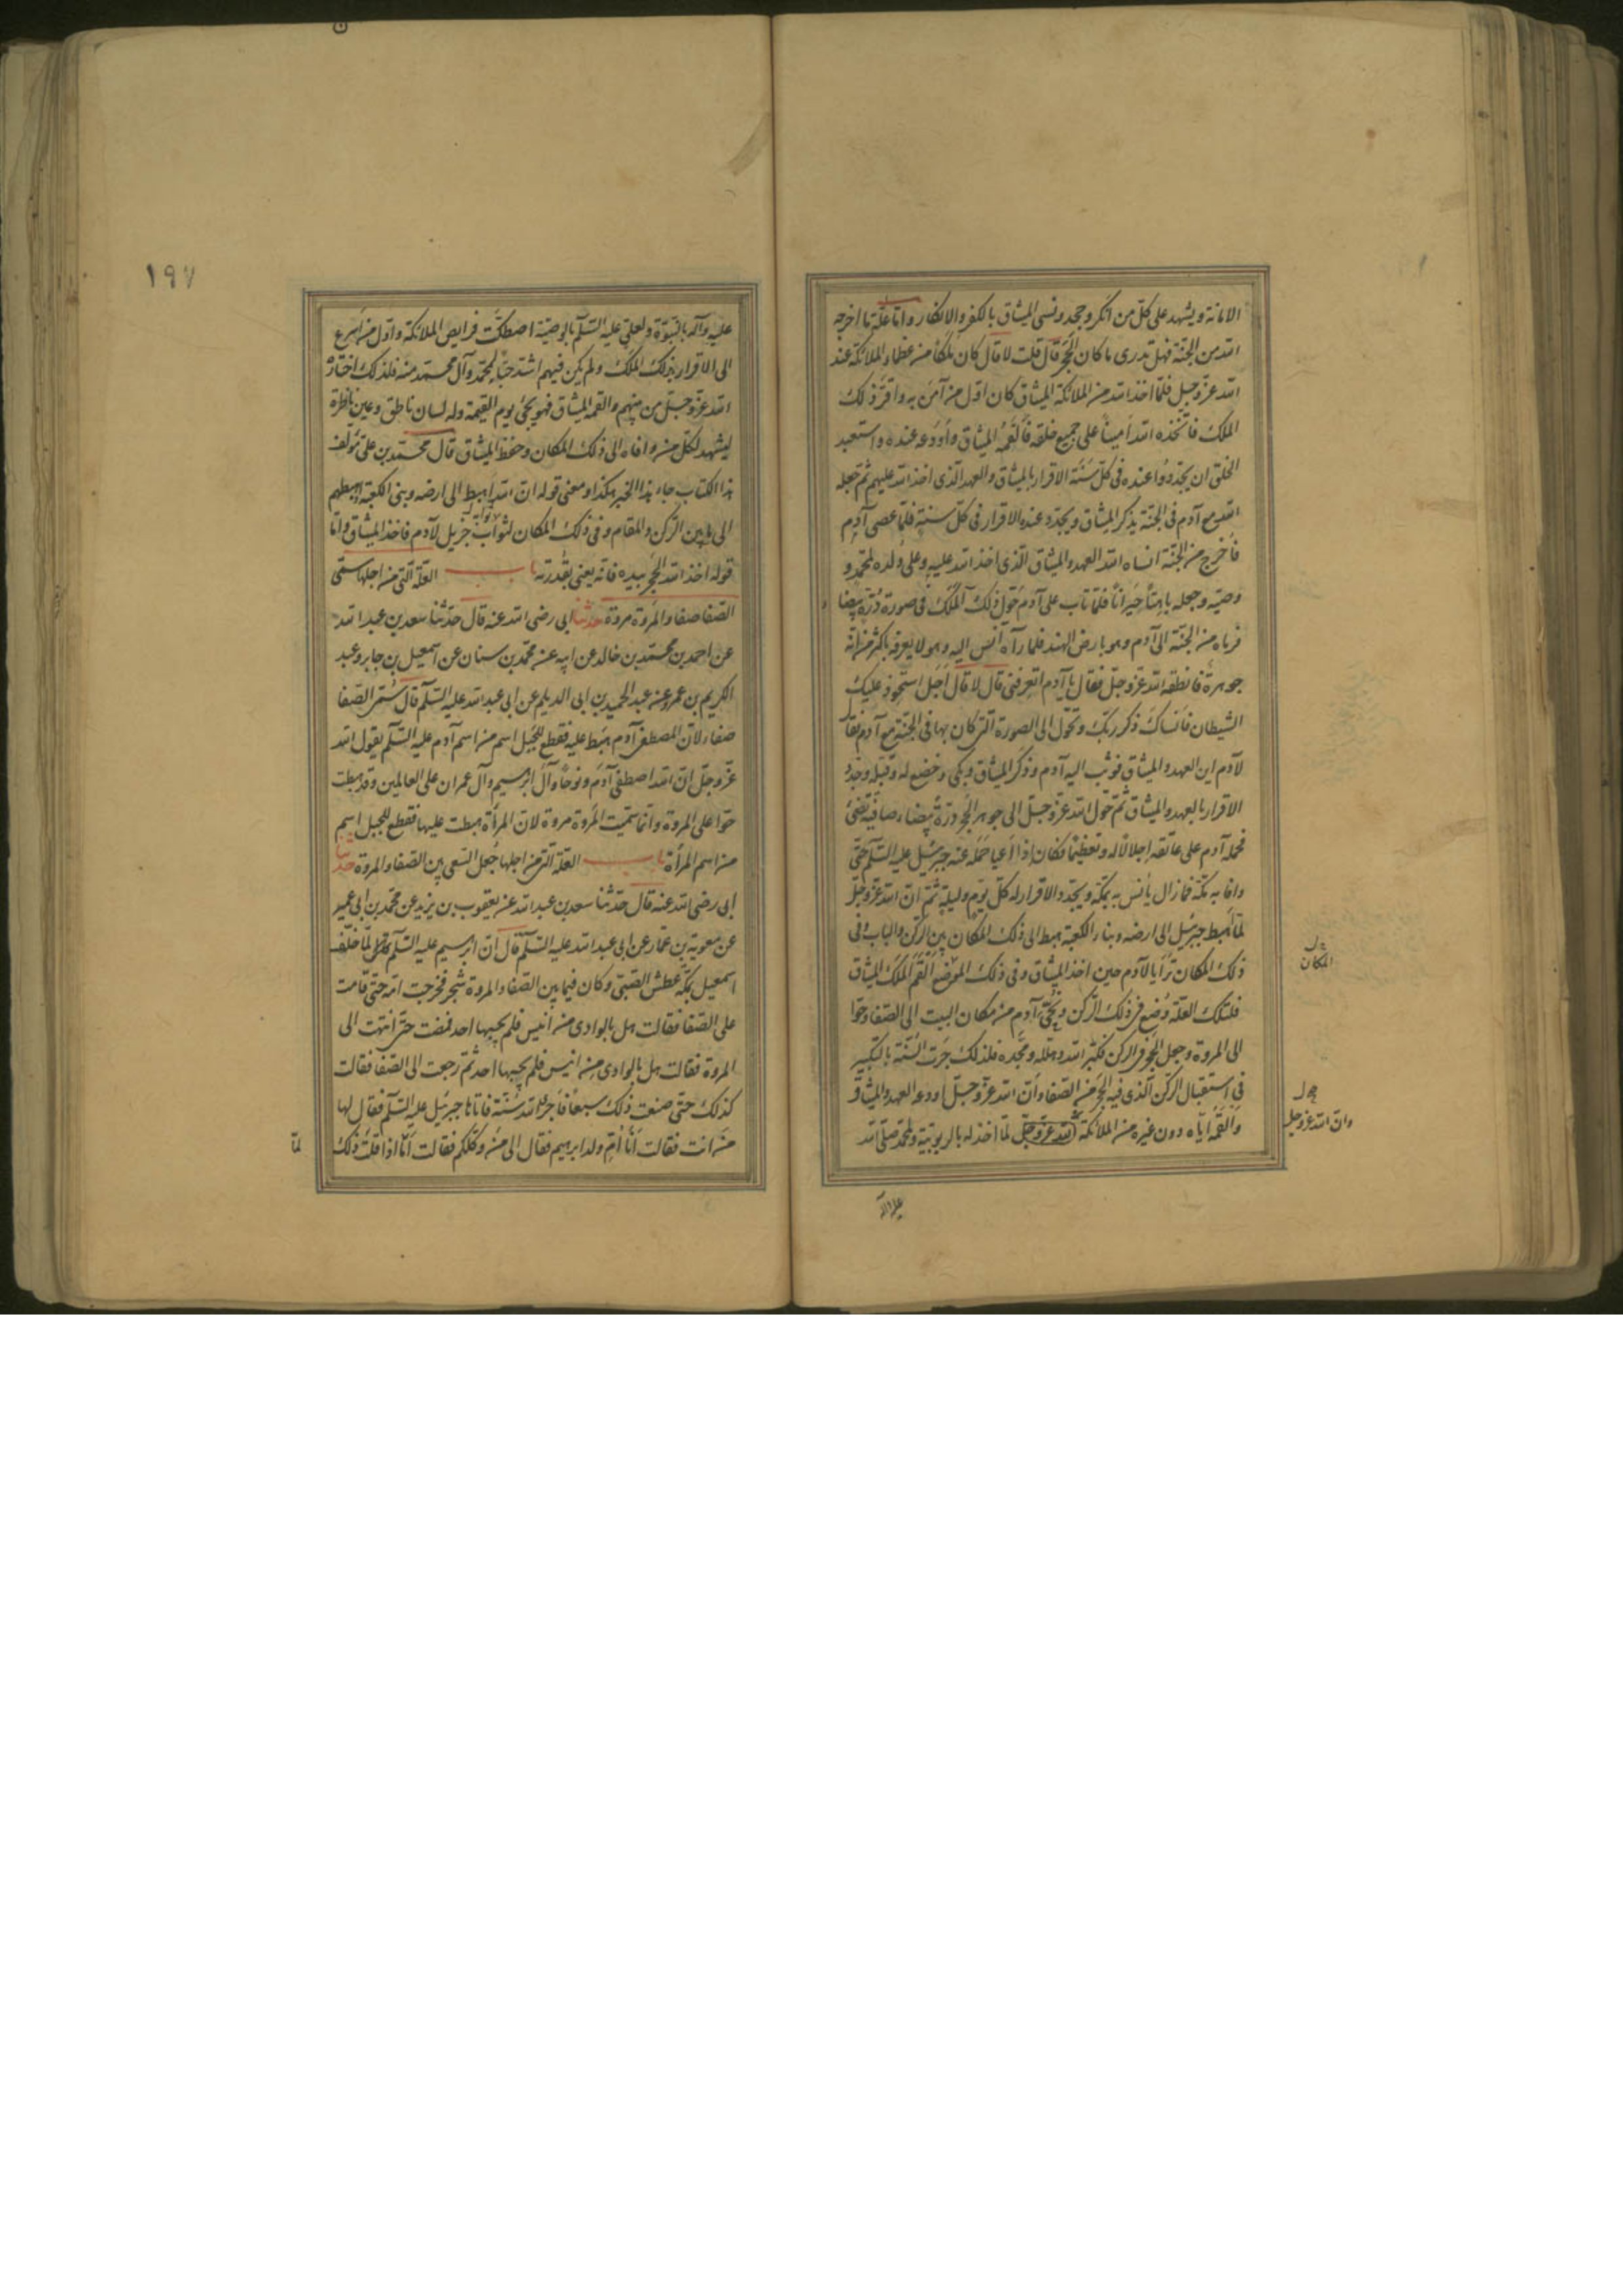 الامانة ويشهد على كل من انكر وجحد ونسى الميثاق بالكفر والانكار واما علة ما اخرجه
الله من الجنة فهل تدرى ما كان الحجر قال قلت لا قال كان ملكا من عظماء الملائكة عند
الله عز وجل فلما اخذ الله من الملائكة الميثاق كان اول من آمن به واقر ذلك
الملك فاتخذه الله امينا على جميع خلقه فالقمه الميثاق واودعه عنده واستعبد
الخلق ان يجددوا عنده فى كل سنة الاقرار بالميثاق والعهد الذى اخذ الله عليهم ثم جعله
الله مع آدم فى الجنة يذكر الميثاق ويجدد عنده الاقرار فى كل سنة فلما عصى آدم
فاخرج من الجنة انساه الله العهد والميثاق الذى اخذ الله عليه وعلى ولده لمحمد و
وصيه وجعله باهتا حيرانا فلما تاب على آدم حول ذلك الملك فى صورة درة بيضا
فرماه من الجنة الى آدم وهو بارض الهند فلما رآه أنس اليه وهو لا يعرفه باكثر من انه
جوهرة فانطقه الله عز وجل فقال يا آدم اتعرفنى قال لا قال اجل استحوذ عليك
الشيطان فانساك ذكر ربك وتحول الى الصورة التى كان بها فى الجنة مع آدم فقال
لآدم اين العهد والميثاق فوثب اليه آدم وذكر الميثاق وبكى وخضع له وقبله وجدد
الاقرار بالعهد والميثاق ثم حول الله عز وجل الى جوهر الحجر درة بيضاء صافية تضئ
فحمله آدم على عاتقه اجلالا له وتعظيما فكان اذا اعيا حمله عنه جبرئيل عليه السلم حتى
وافا به مكة فما زال يأنس به بمكة ويجدد الاقرار له كل يوم وليلة ثم ان الله عز وجل
لما اهبط جبرئيل الى ارضه وبناء الكعبة هبط الى ذلك المكان بين الركن والباب وفى
ذلك المكان ترايا لآدم حين اخذ الميثاق وفى ذلك الموضع القم الملك الميثاق
المكان
فلتلك العلة وضع فى ذلك الركن ونحى آدم من مكان البيت الى الصفا وحوا
الى المروة وجعل الحجر فى الركن فكبر الله وهلله ومجده فلذلك جرت السنة بالتكبير
فى استقبال الركن الذى فيه الحجر من الصفا وان الله عز وجل اودعه العهد والميثاق
والقمه اياه دون غيره من الملائكة الله عز وجل لما اخذ له بالربوبية ولمحمد صلى الله
وان الله عز وجل
عليه وآله
١٩٧
عليه وآله بالنبوة ولعلى عليه السلم بالوصية اصطكت فرايص الملائكة واول من اسرع
الى الاقرار بذلك الملك ولم يكن فيهم اشد حبا لمحمد وآل محمد منه فلذلك اختاره
الله عز وجل من بينهم والقمه الميثاق فهو يجئ يوم القيمة وله لسان ناطق وعين ناظرة
ليشهد لكل من وافاه الى ذلك المكان وحفظ الميثاق قال محمد بن على مؤلف
هذا الكتاب جاء هذا الخبر هكذا ومعنى قوله ان الله اهبط الى ارضه وبنى الكعبة اهبطهم
الى ما بين الركن والمقام وفى ذلك المكان لثواب جزيل لآدم فاخذ الميثاق واما
قوله اخذ الله الحجر بيده فانه يعنى بقدرته باب العلة التى من اجلها سمى
الصفا صفا والمروة مروة حدثنا ابى رضى الله عنه قال حدثنا سعد بن عبد الله
عن احمد بن محمد بن خالد عن ابيه عن محمد بن سنان عن اسمعيل بن جابر وعبد
الكريم بن عمرو عن عبد الحميد بن ابى الديلم عن ابى عبد الله عليه السلم قال سمى الصفا
صفاء لان المصطفى آدم هبط عليه فقطع للجبل اسم من اسم آدم عليه السلم يقول الله
عز وجل ان الله اصطفى آدم ونوحا وآل ابرهيم وآل عمران على العالمين وقد هبطت
حوا على المروة وانما سميت المروة مروة لان المرأة هبطت عليها فقطع للجبل اسم
من اسم المرأة باب العلة التى من اجلها جعل السعى بين الصفا والمروة حدثنا
ابى رضى الله عنه قال حدثنا سعد بن عبد الله عن يعقوب بن يزيد عن محمد بن ابى عمير
عن معوية بن عمار عن ابى عبد الله عليه السلم قال ان ابرهيم عليه السلم لما خلف
اسمعيل بمكة عطش الصبى وكان فيما بين الصفا والمروة شجر فخرجت امه حتى قامت
على الصفا فقالت هل بالوادى من انيس فلم يجبها احد فمضت حتى انتهت الى
المروة فقالت هل بالوادى من انيس فلم يجبها احد ثم رجعت الى الصفا فقالت
كذلك حتى صنعت ذلك سبعا فاجرى الله سنة فاتاها جبرئيل عليه السلم فقال لها
من انت فقالت انا ام ولد ابرهيم فقال الى من وكلكم فقالت اما اذا قلت ذلك
لما